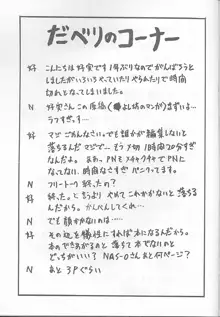 だべりのコーナー
好 こんにちは好実です1年ぶりなのでがんばろうと
しましたがいろいろやっていたりやらんだりで時間
切れとなってしまいました。
N 好実さんこの原稿(よし坊のマンガ)まずいよ…
ラフすぎ…
好 マジごめんなさい。でも誰かが編集しないと
落ちるんだ マジで… もう〆切1時間20分すぎ
なんだよ。 あっPNもメチャクチャでPNに
なってない、時間なさすぎ パニクってます。
N フリートーク終ったの?
好 終った。 そうよりやせてこれかかないと落ち
るんだから。かんべんしてくれ…
N でも誰かないのは…
好 その辺を犠牲にすれば本になるんだから。
本のできあがるのと落ちて本でないのと
どっちがいい? NAS-Oさんあと何ページ?
N あと3Pぐらい